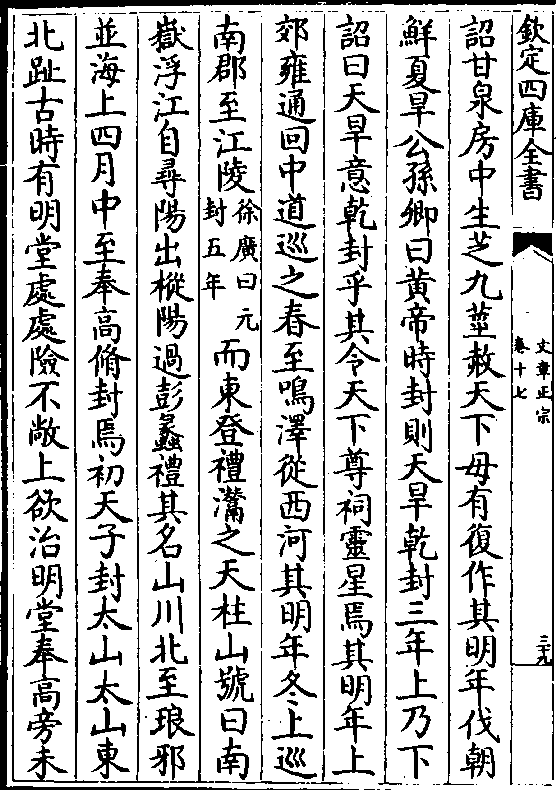 欽定四庫全書
文章正宗
卷十七
三十九
詔甘泉房中生芝九莖赦天下毋有復作其明年伐朝
鮮夏旱公孫卿曰黄帝時封則天旱乾封三年上乃下
詔曰天旱意乾封乎其令天下尊祠靈星焉其明年上
郊雍通回中道廵之春至鳴澤從西河其明年冬上廵
南郡至江陵徐廣曰元封五年而東登禮灊之天柱山號曰南
嶽浮江自尋陽出樅陽過彭蠡禮其名山川北至琅邪
並海上四月中至奉高脩封焉初天子封太山太山東
北趾古時有明堂處處險不敞上欲治明堂奉高旁未